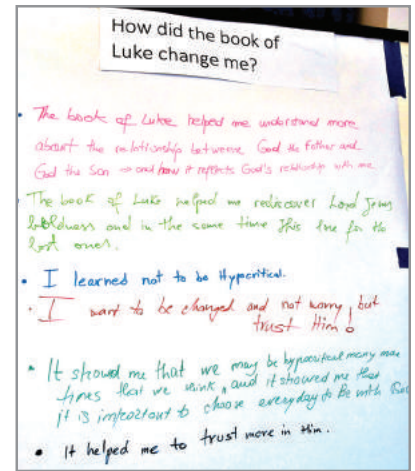 How did the book of
Luke change me?
• The book of Luke helped me understand more
about the relationship between God the Father and
God the Son → and how it reflects God's relationship with me
• The book of Luke helped me rediscover Lord Jesus
boldness and in the same time His love for the
lost ones.
• I learned not to be Hypocritical.
• I want to be changed and not worry, but
trust Him!
• It showed me that we may be hypocritical many more
times that we think, and it showed me that
it is important to choose everyday to Be with
• It helped me to trust more in Him.